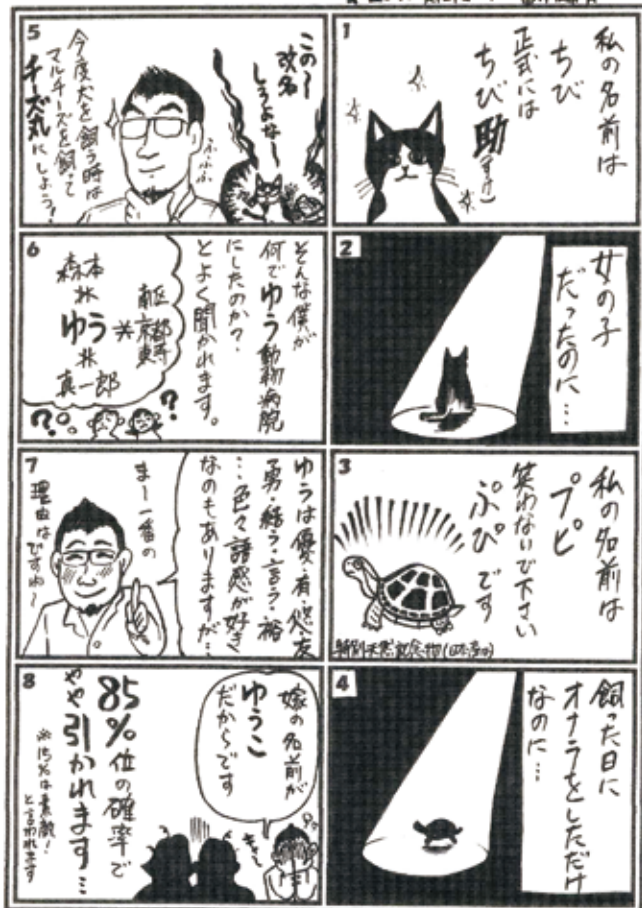 1
私の名前は
ちび
正式には
ちび助(すけ)
2
女の子
だったのに…
3
私の名前は
プピ
笑わないで下さい
ぷぴです
特別天然記念物
4
飼った日に
オナラをしただけ
なのに…
5
この〜
改名
しろよな〜
ふふふ
今度犬を飼う時は
マルチーズを飼って
チーズ丸にしよう!
6
そんな僕が
何でゆう動物病院
にしたのか?
とよく聞かれます。
南区
京都
東寺
※
森本
※
ゆう
※
真一郎
?
?
7
ゆうは優・有・悠・友
勇・結う・言う・裕
…色々誘惑が好き
なのもありますが…
ま〜一番の
理由は
ですね〜
8
嫁の名前が
ゆうこ
だからです
キャ〜
85%位の確率で
やや引かれます…
※15%は素敵!
と言われます